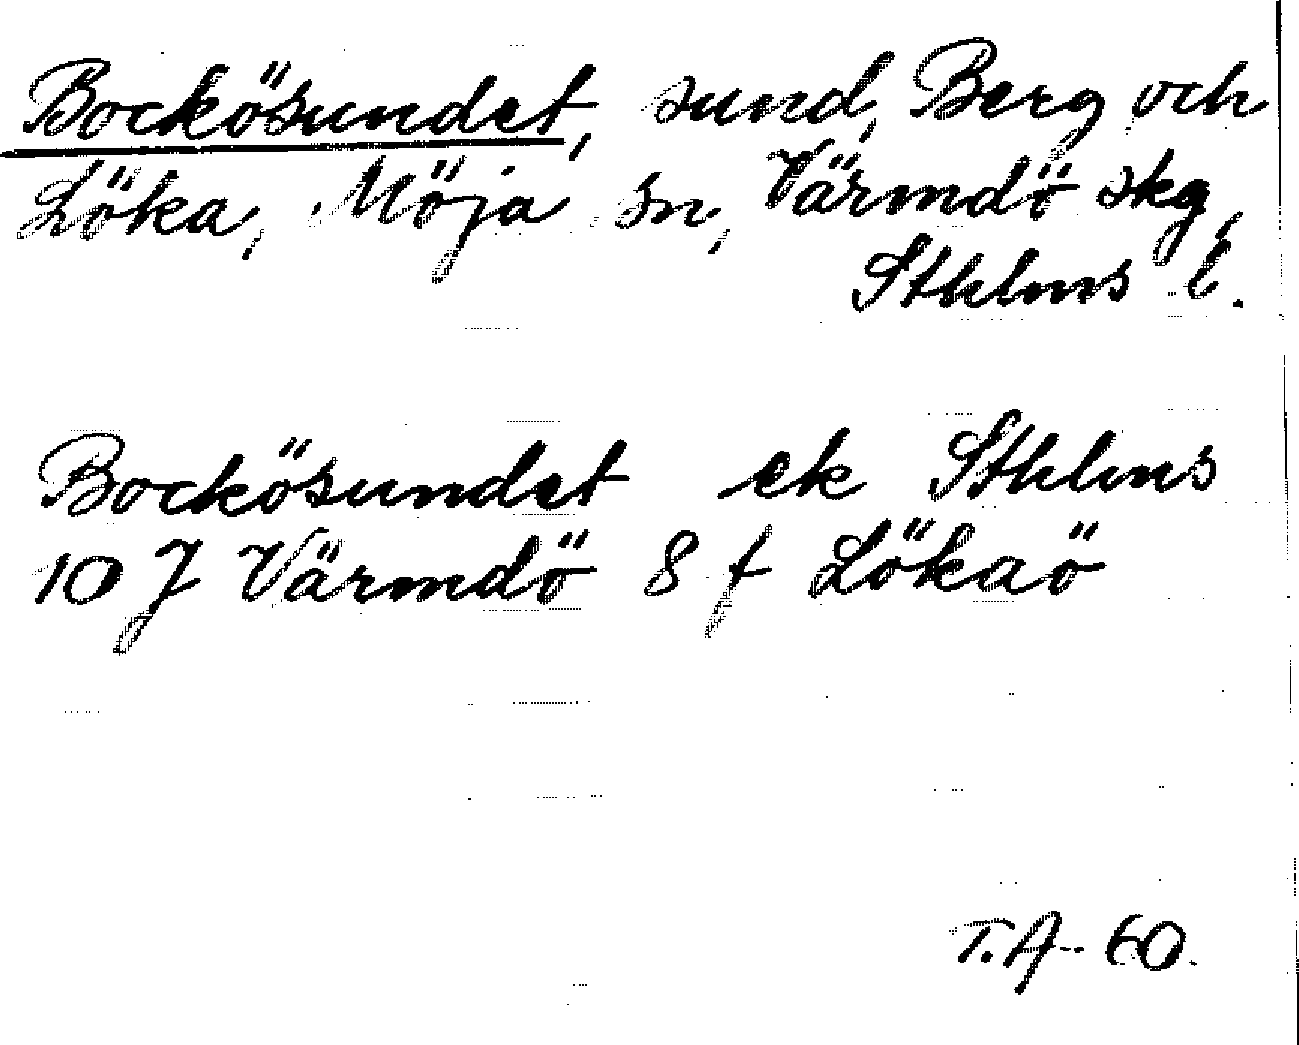 Bockösundet, sund, Berg och
Löka, Möja sn, Värmdö skg,
Sthlms l.
Bockösundet ek Sthlms
10 J Värmdö 8 f Lökaö
T.A-60.